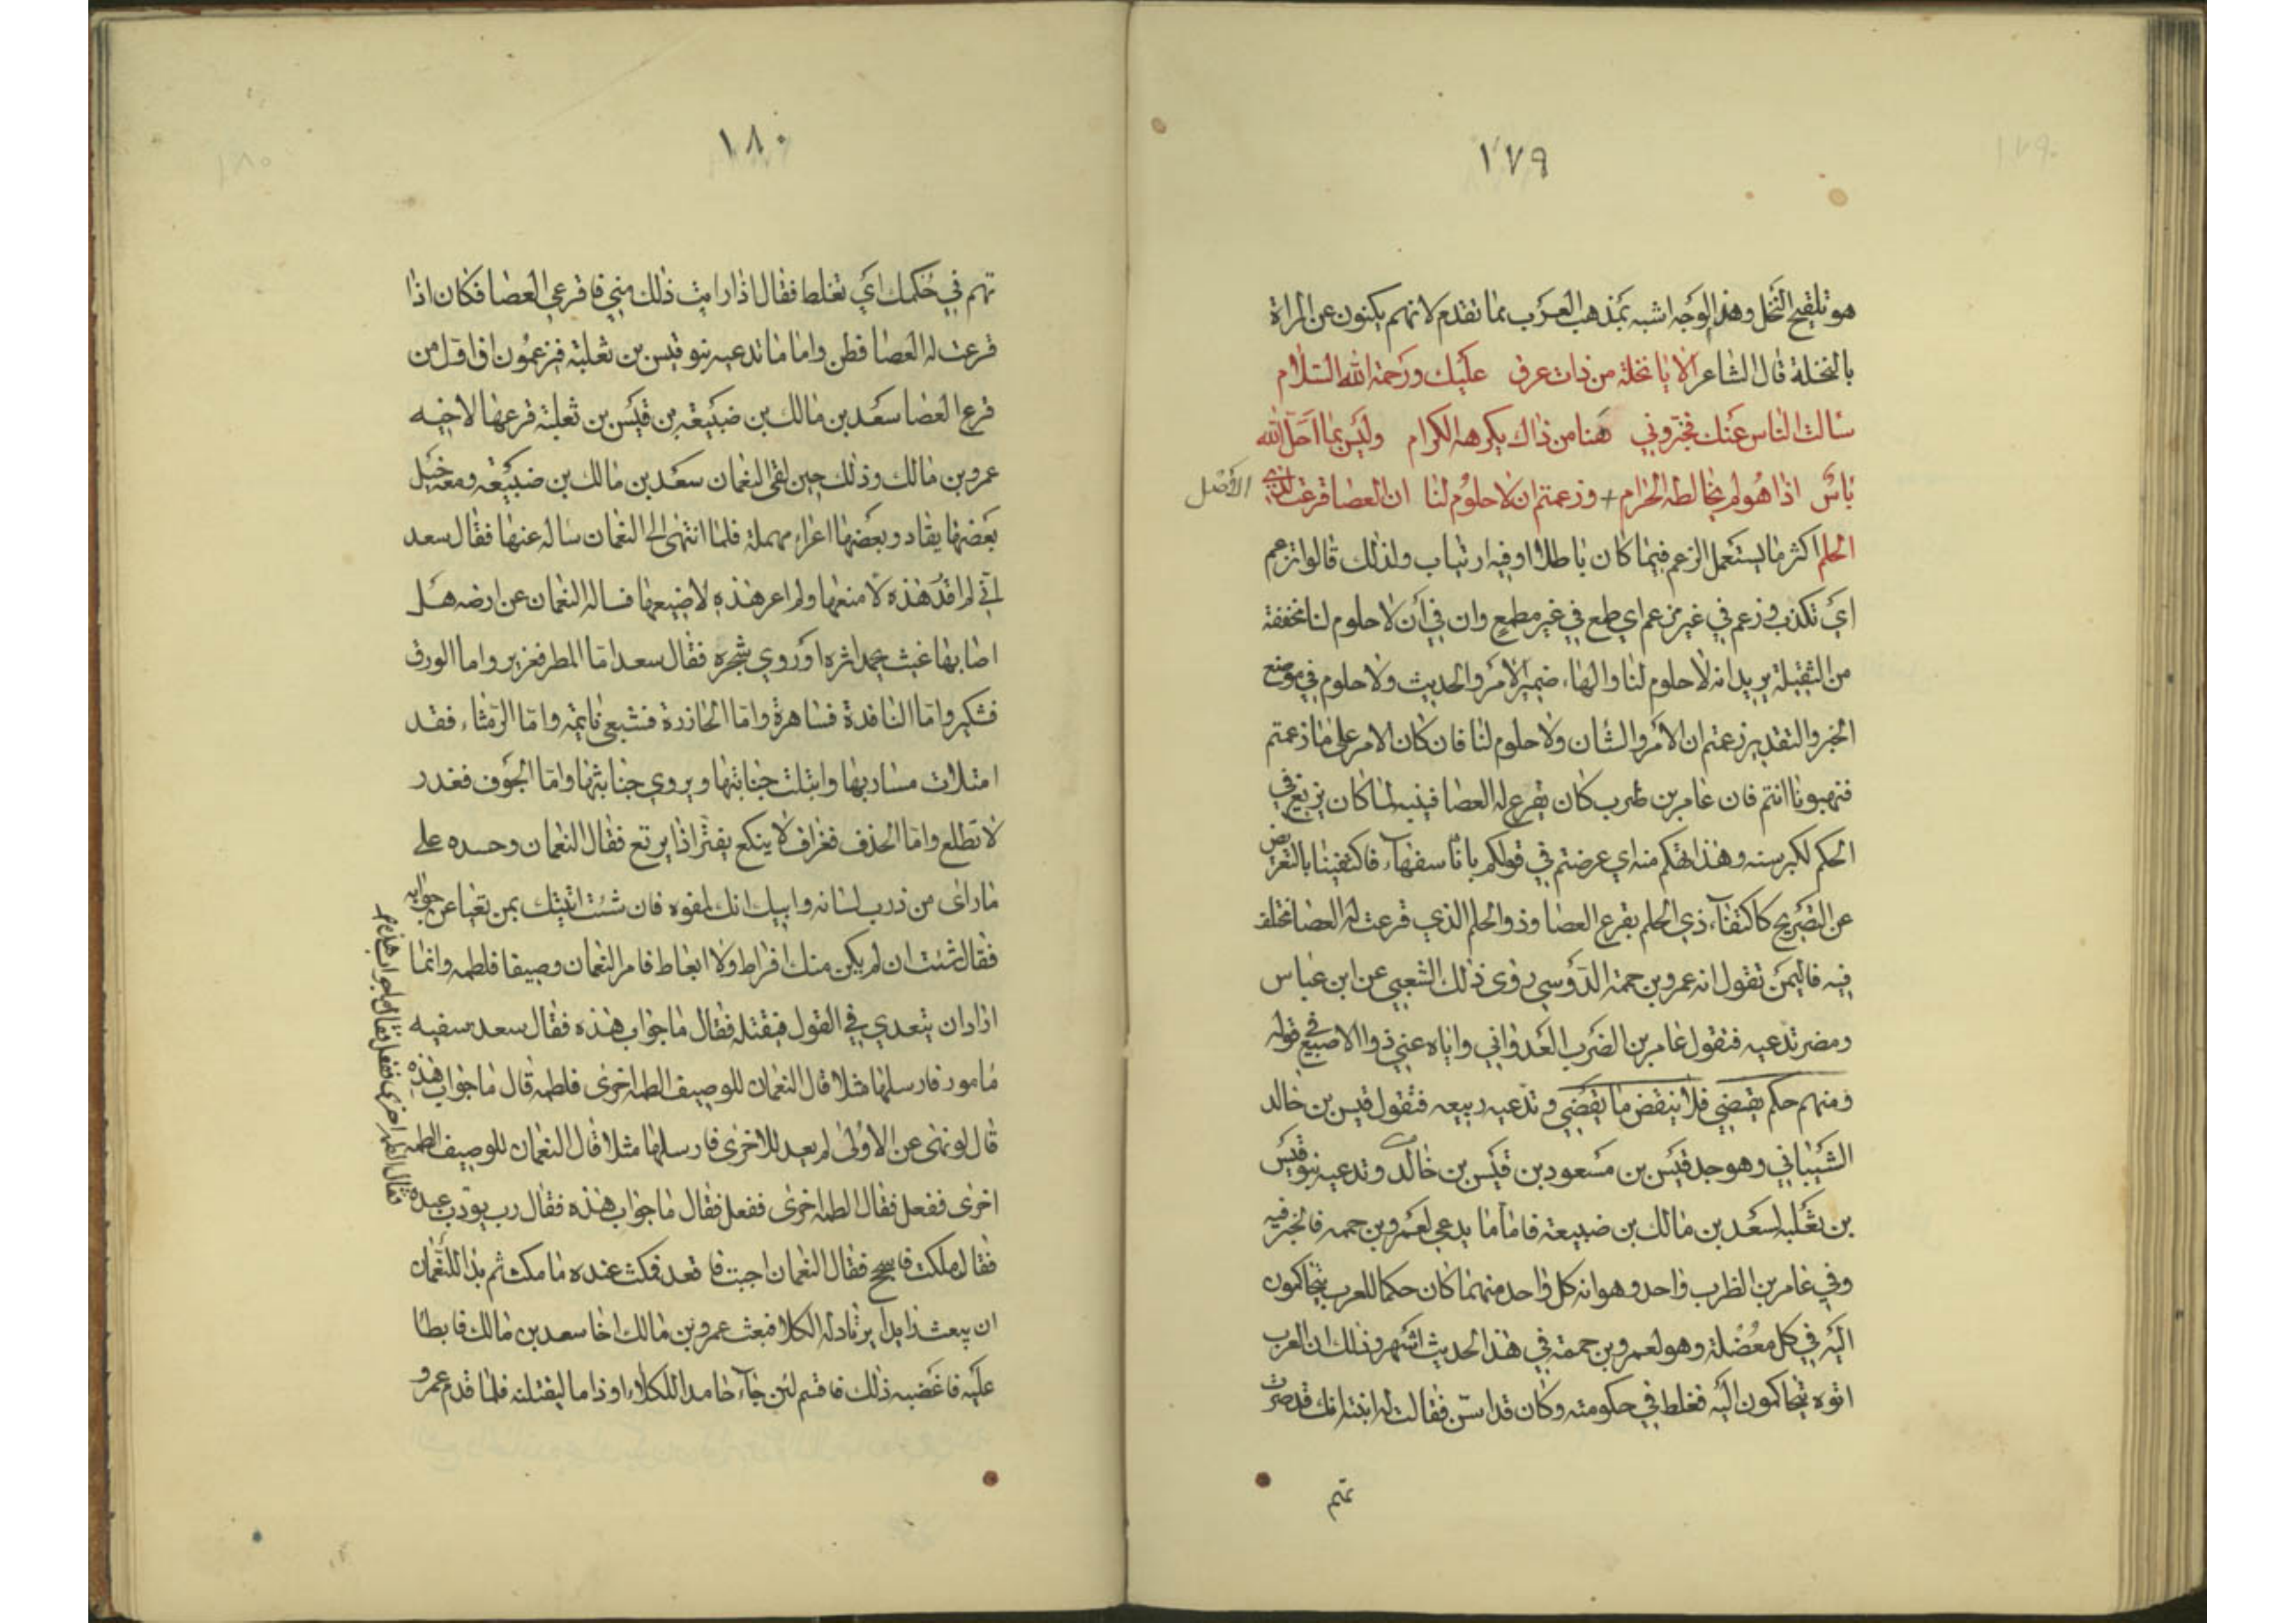 ١٧٩
هو تلقيح النخل وهذا الوجه اشبه بمذهب العرب بما تقدم لانهم يكنون عن المراة
بالنخلة قال الشاعر الا يا نخلة من ذات عرق عليك ورحمة الله السلام
سالت الناس عنك فخبروني هنا من ذاك يكرهه الكرام وليس بما احل الله
باس اذا هو لم يخالطه الحرام + وزعمتم ان لا حلوم لنا ان العصا قرعت لذي
الاصل
الحلم اكثر ما يستعمل الزعم فيما كان باطلا او فيه ارتياب ولذلك قالوا تزعم
اي تكذب وزعم في غير مزعم اي طمع في غير مطمع وان في أن لا حلوم لنا مخففة
من الثقيلة يريد انه لا حلوم لنا والهاء ضمير الامر والحديث ولا حلوم في موضع
الخبر والتقدير زعمتم ان الامر والشان ولا حلوم لنا فان كان الامر على ما زعمتم
فنبهونا انتم فان عامر بن ظرب كان يقرع له العصا فينبه لما كان يزيغ في
الحكم لكبر سنه وهذا تهكم منه اي عرضتم في قولكم بانا سفهآء فاكتفينا بالتعريض
عن التصريح كاكتفآء ذي الحلم بقرع العصا وذو الحلم الذي قرعت له العصا مختلف
فيه فاليمن تقول انه عمرو بن حممة الدوسي روى ذلك الشعبي عن ابن عباس
ومضر تدعيه فتقول عامر بن الضرب العدواني واياه عني ذو الاصبع في قوله
ومنهم حكم يقضي فلا ينقض ما يقضي وتدعيه ربيعه فتقول قيس بن خالد
الشيباني وهو جد قيس بن مسعود بن قيس بن خالد وتدعيه بنو قيس
بن ثعلبه لسعد بن مالك بن ضبيعة فاما ما يدعي لعمرو بن حممه فالخبر فيه
وفي عامر بن الظرب واحد وهو انه كل واحد منهما كان حكما للعرب يتحاكمون
اليه في كل معضلة وهو لعمرو بن حممة في هذا الحديث اشهر وذلك ان العرب
اتوه يتحاكمون اليه فغلط في حكومته وكان قد اسن فقالت له ابنته انك قد صرت
تهم
١٨٠
تهم في حكمك اي تغلط فقال اذا رايت ذلك مني فاقرعي العصا فكان اذا
قرعت له العصا فطن واما ما تدعيه بنو قيس بن ثعلبة فيزعمون ان اول من
قرع العصا سعد بن مالك بن ضبيعة بن قيس بن ثعلبة قرعها لاخيه
عمرو بن مالك وذلك حين لقي النعمان سعد بن مالك بن ضبيعة ومعه خيل
بعضها يقاد وبعضها اعراء مهملة فلما انتهى الى النعمان ساله عنها فقال سعد
اني لم اقد هذه لامنعها ولم اعر هذه لاضيعها فساله النعمان عن ارضه هل
اصابها غيث يحمد اثره او روي شجره فقال سعد اما المطر فغزير واما الورق
فشكير واما النافدة فساهرة واما الحازرة فشبعى نايمة واما الرمثاء فقد
امتلات مساربها وابتلت جنابتها ويروي جنابثها واما الجوف فغدر
لا تطلع واما الحذف فغراف لا ينكع يفتر اذا يرتع فقال النعمان وحسده على
ما راى من ذرب لسانه وابيك انك لمفوه فان شئت اتيتك بمن تعيا عن جوابه
فقال شئت ان لم يكن منك افراط ولا ابعاط فامر النعمان وصيفا فلطمه وانما
اراد ان يتعدي في القول فيقتله فقال ما جواب هذه فقال سعد سفيه
مامور فارسلها مثلا قال النعمان للوصيف الطمه اخرى فلطمه قال ما جواب هذه
قال لو نهي عن الاولى لم يعد للاخرى فارسلها مثلا قال النعمان للوصيف الطمه
اخرى ففعل فقال الطمه اخرى ففعل فقال ما جواب هذه فقال رب يودب عبده
فقال الطمه اخرى ففعل فقال ما جواب هذه
فقال ملكت فاسجح فقال النعمان اجبت فاقعد فمكث عنده ما مكث ثم بدا للنعمان
ان يبعث رايدا يرتاد له الكلا فبعث عمرو بن مالك اخا سعد بن مالك فابطا
عليه فاغضبه ذلك فاقسم لئن جآء حامدا للكلاء او ذاما ليقتلنه فلما قدم عمرو